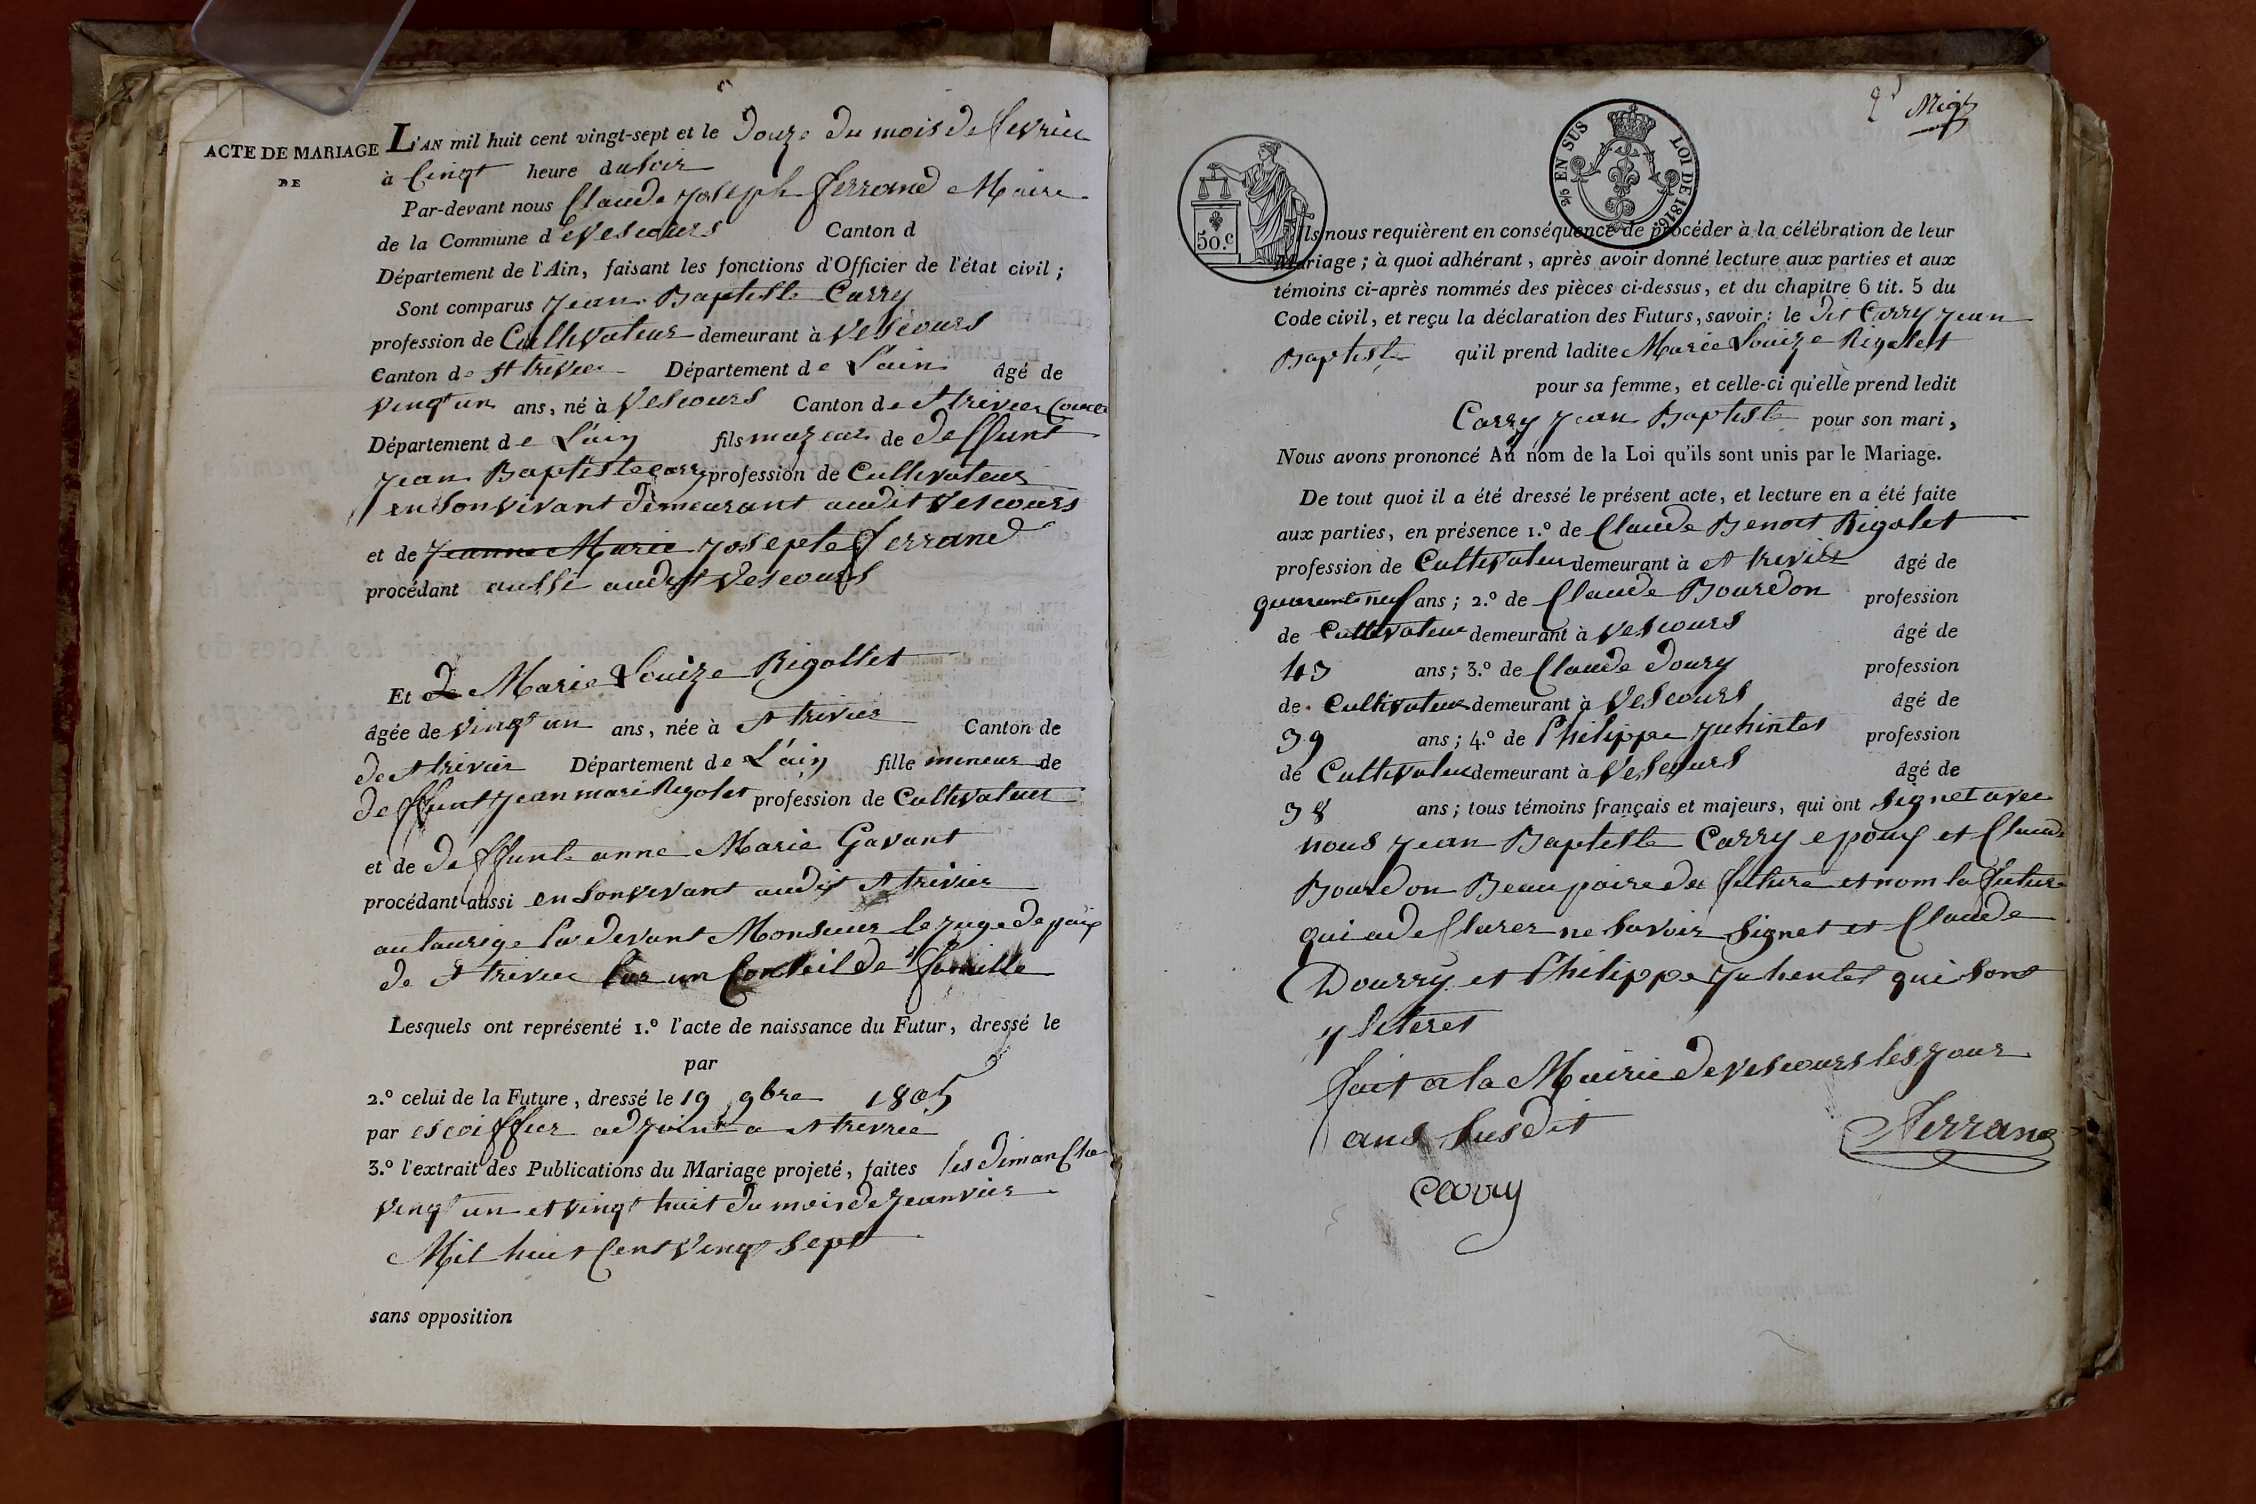 ACTE DE MARIAGE
DE
L'AN mil huit cent vingt-sept et le douze du mois de fevrier
à Cinqt heure du soir
Par-devant nous Claude joseph ferrand Maire
de la Commune d'evescours Canton d
Département de l'Ain, faisant les fonctions d'Officier de l'état civil ;
Sont comparus jean Baptiste Carry
profession de Cultivateur demeurant à vescours
Canton de st trivier Département de L'ain âgé de
vingt un ans, né à vescours Canton de st trivier
Département de L'ain fils mazeur de deffunt
jean Baptiste carry profession de Cultivateur
en son vivant demeurant audit vescours
et de jeanne Marie josepte ferrand
procédant aussi audit vescours
Et de Marie Louize Rigollet
âgée de vingt un ans, née à st trivier Canton de
de st trivier Département de L'ain fille mineur de
deffunt jean mari Rigolet profession de Cultivateur
et de deffunte anne Marie Gavant
procédant aussi en son vivant audit st trivier
par devant Monsieur le juge de paix
de st trivier par un Conseil de famille
Lesquels ont représenté 1.º l'acte de naissance du Futur, dressé le
par
2.º celui de la Future, dressé le 19 9bre 1805
par escoiffier adjoint a st trivier
3.º l'extrait des Publications du Mariage projeté, faites les dimanche
vingt un et vingt huit du mois de jeanvier
Mil huit Cent vingt sept
sans opposition
50.c
EN SUS LOI DE 1816
Ils nous requièrent en conséquence de procéder à la célébration de leur
Mariage ; à quoi adhérant, après avoir donné lecture aux parties et aux
témoins ci-après nommés des pièces ci-dessus, et du chapitre 6 tit. 5 du
Code civil, et reçu la déclaration des Futurs, savoir : le dit Carry jean
Baptiste qu'il prend ladite Marie Louize Rigolett
pour sa femme, et celle-ci qu'elle prend ledit
Carry jean Baptiste pour son mari,
Nous avons prononcé Au nom de la Loi qu'ils sont unis par le Mariage.
De tout quoi il a été dressé le présent acte, et lecture en a été faite
aux parties, en présence 1.º de Claude Benoit Rigolet
profession de Cultivateur demeurant à st trivier âgé de
quarante neuf ans ; 2.º de Claude Bourdon profession
de Cultivateur demeurant à vescours âgé de
43 ans ; 3.º de Claude doury profession
de Cultivateur demeurant à vescours âgé de
39 ans ; 4.º de Philippe juhintet profession
de Cultivateur demeurant à vescours âgé de
38 ans ; tous témoins français et majeurs, qui ont signet avec
nous jean Baptiste Carry epoux et Claude
Bourdon Beau paire de future et nom la future
qui a de Clarer ne savoir signet et Claude
Dourry et Philippe juhentet qui sont
y literet
fait a la Mairie de vescours les jour
ans susdit
ferrand
carry